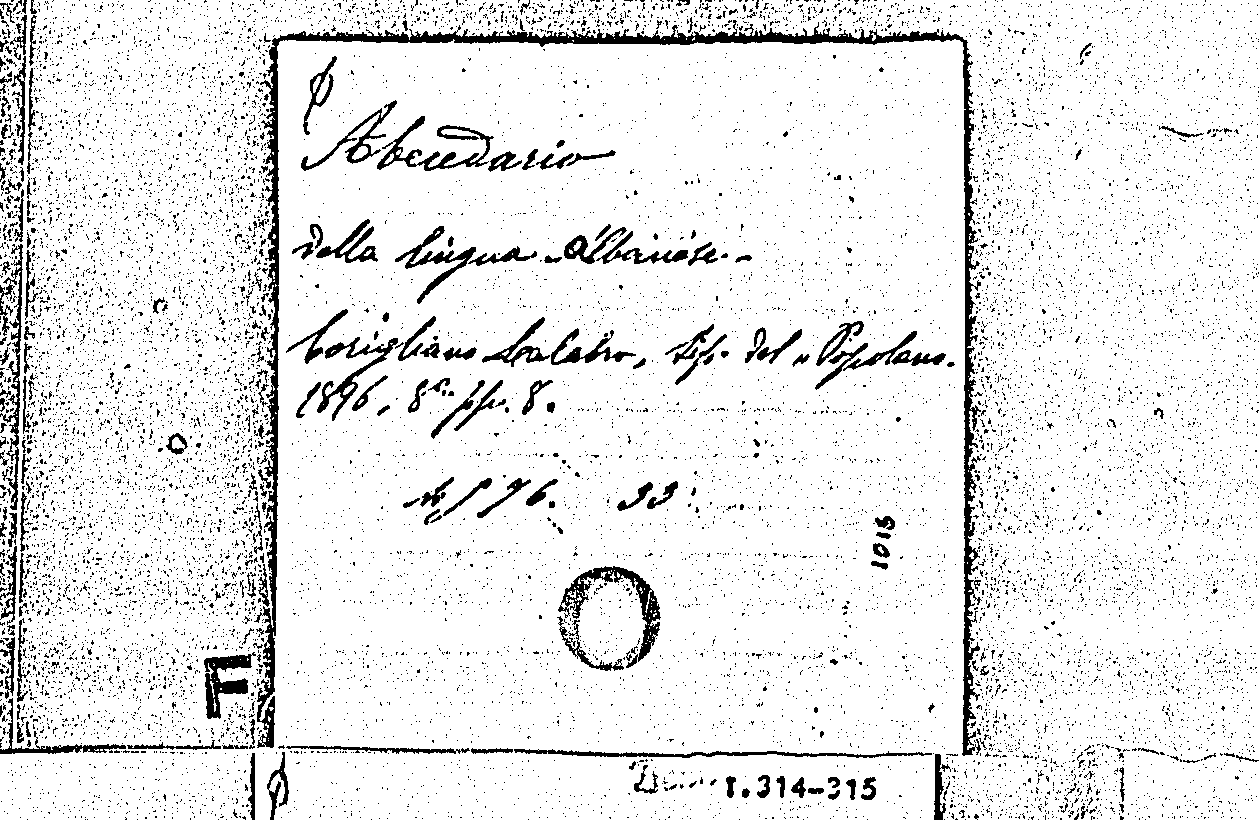 Abecedario
della lingua albanese.-
Corigliano Calabro, Tip. del "Popolano.
1896, 8° pp. 8.
33
1013
F
I.314-315